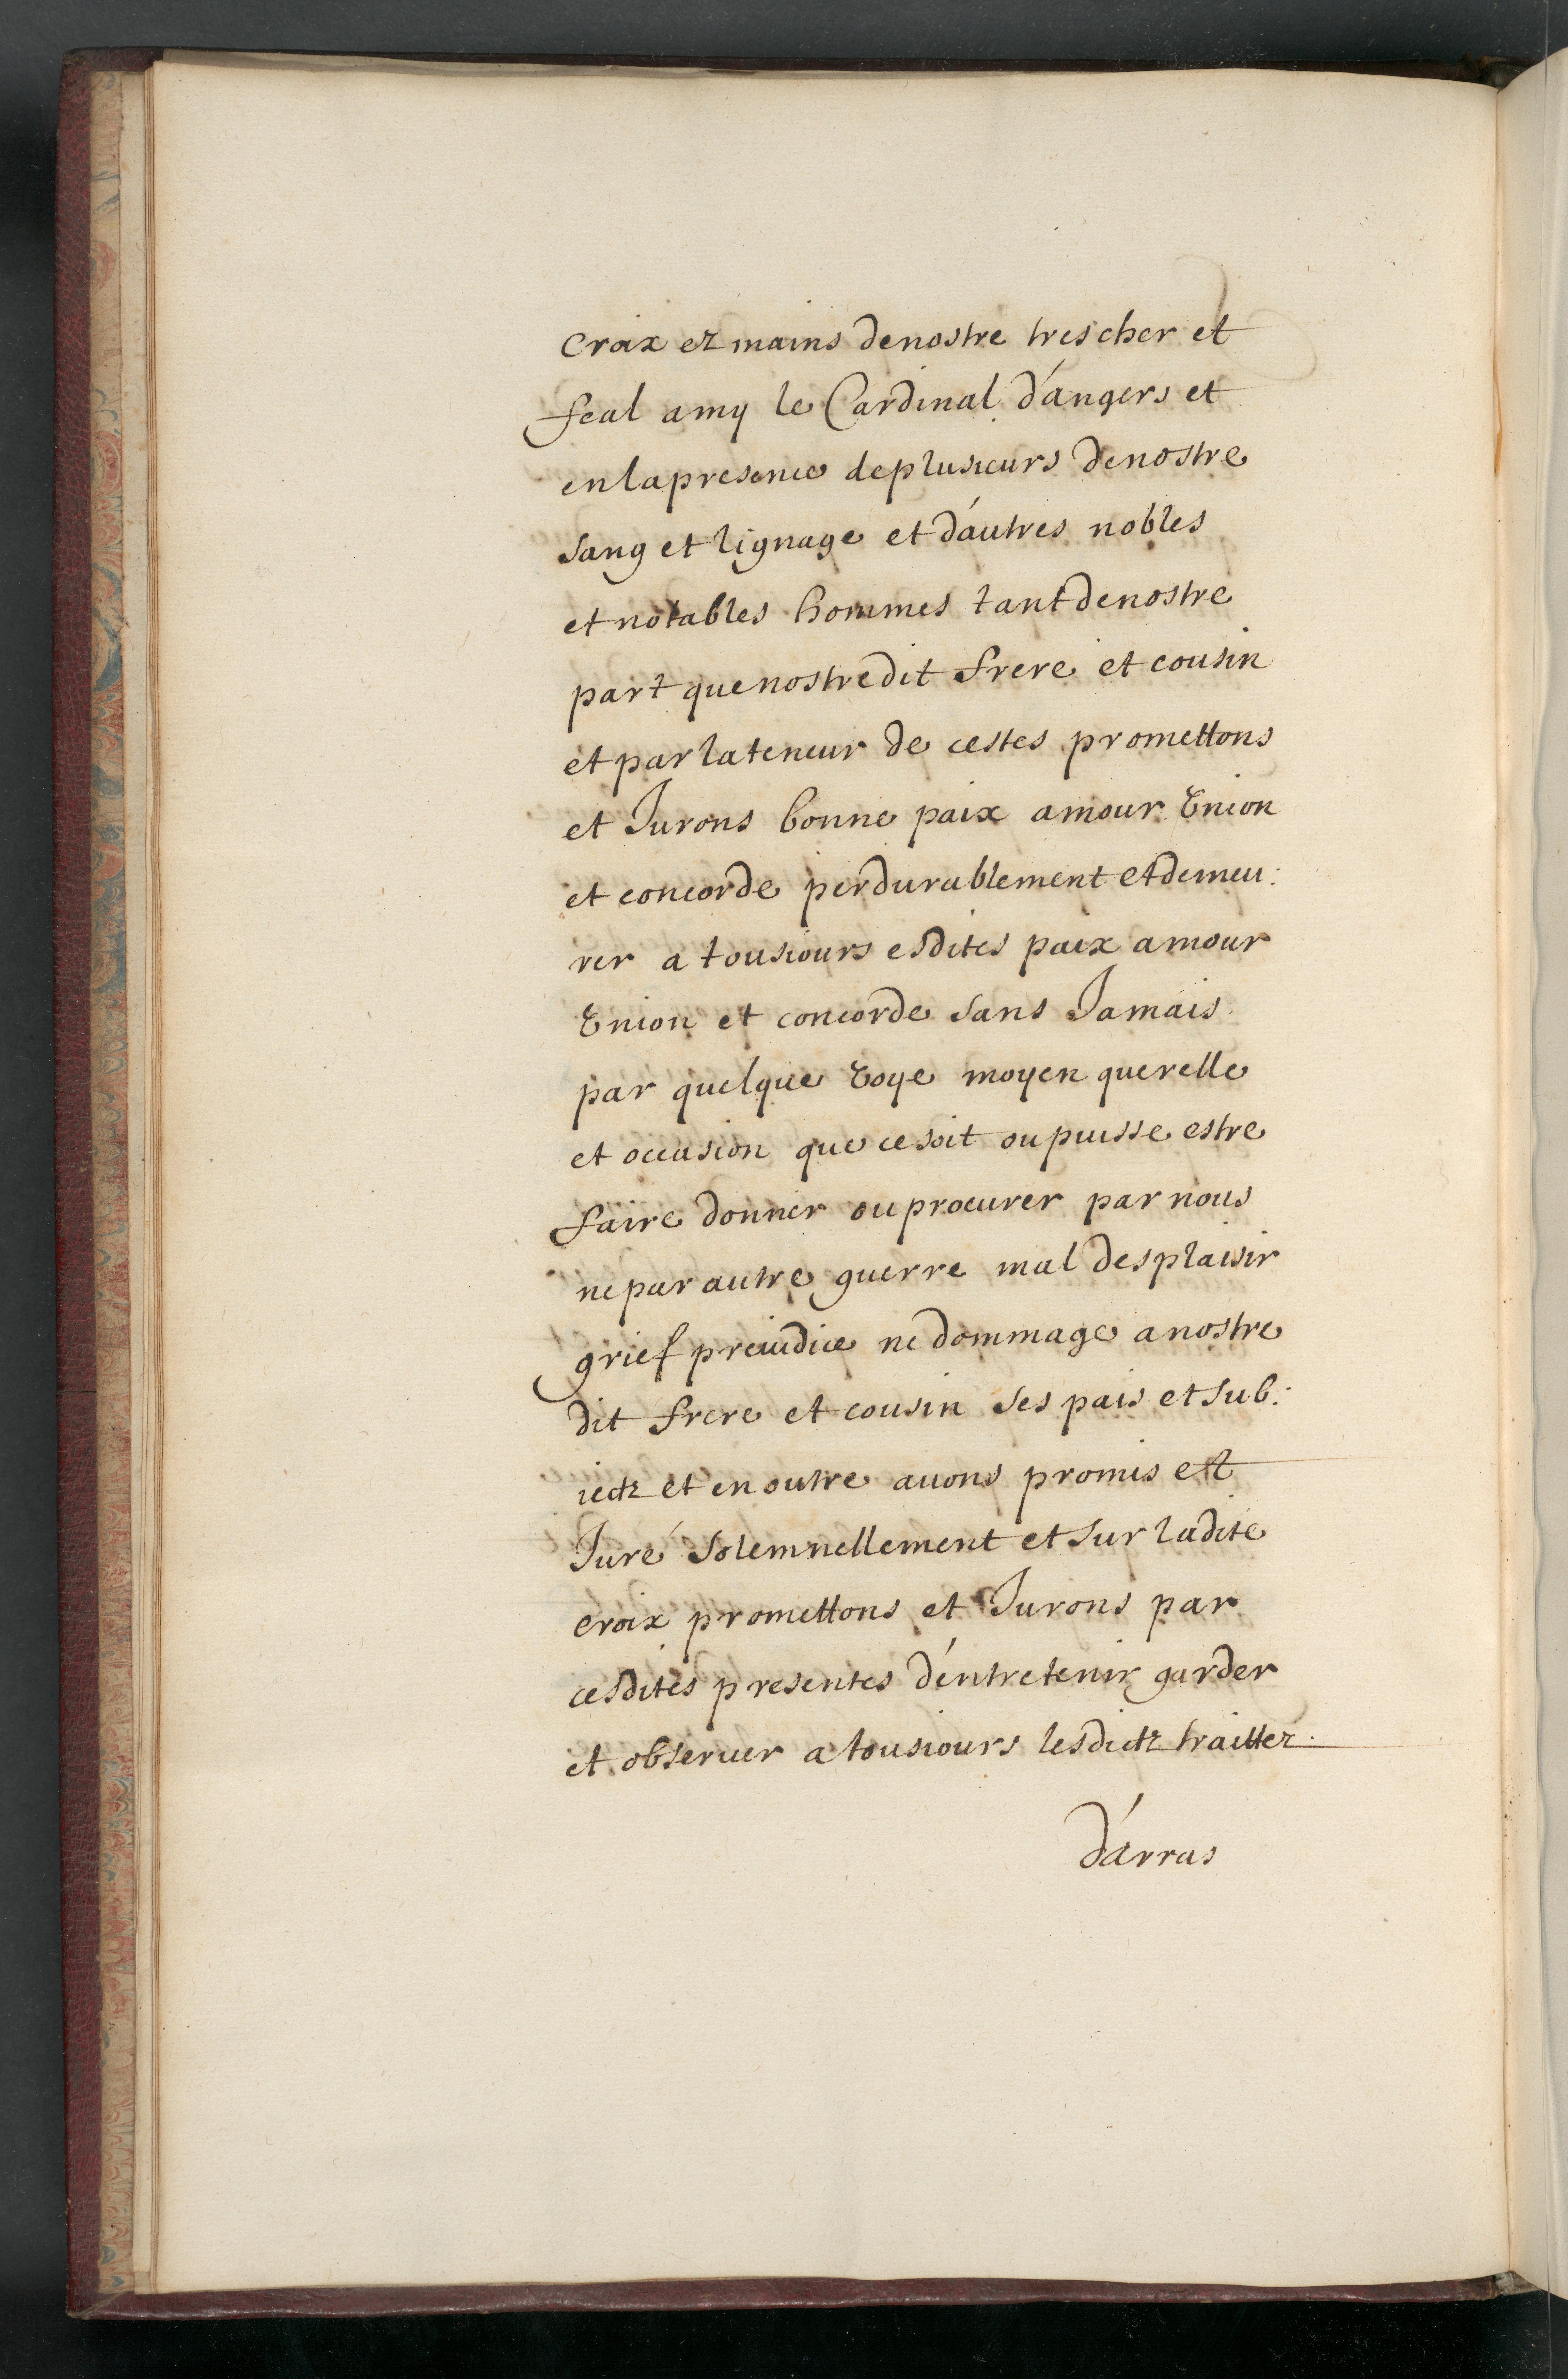 croix ez mains de nostre tres cher et
feal amy le Cardinal d'angers et
en la presence de plusieurs de nostre
sang et lignage et d'autres nobles
et notables hommes tant de nostre
part que nostredit frere et cousin
et par la teneur de cestes promettons
et Jurons bonne paix amour vnion
et concorde perdurablement et demeu:
rer a tousiours esdites paix amour
vnion et concorde sans Jamais
par quelque voye moyen querelle
et occasion que ce soit ou puisse estre
faire donner ou procurer par nous
ne par autre guerre mal desplaisir
grief preiudice ne dommage a nostre
dit frere et cousin ses pais et sub:
iectz et en outre auons promis et
Juré solemnellement et sur ladite
croix promettons et Jurons par
cesdites presentes d'entretenir garder
et obseruer a tousiours lesdictz traittez
d'arras